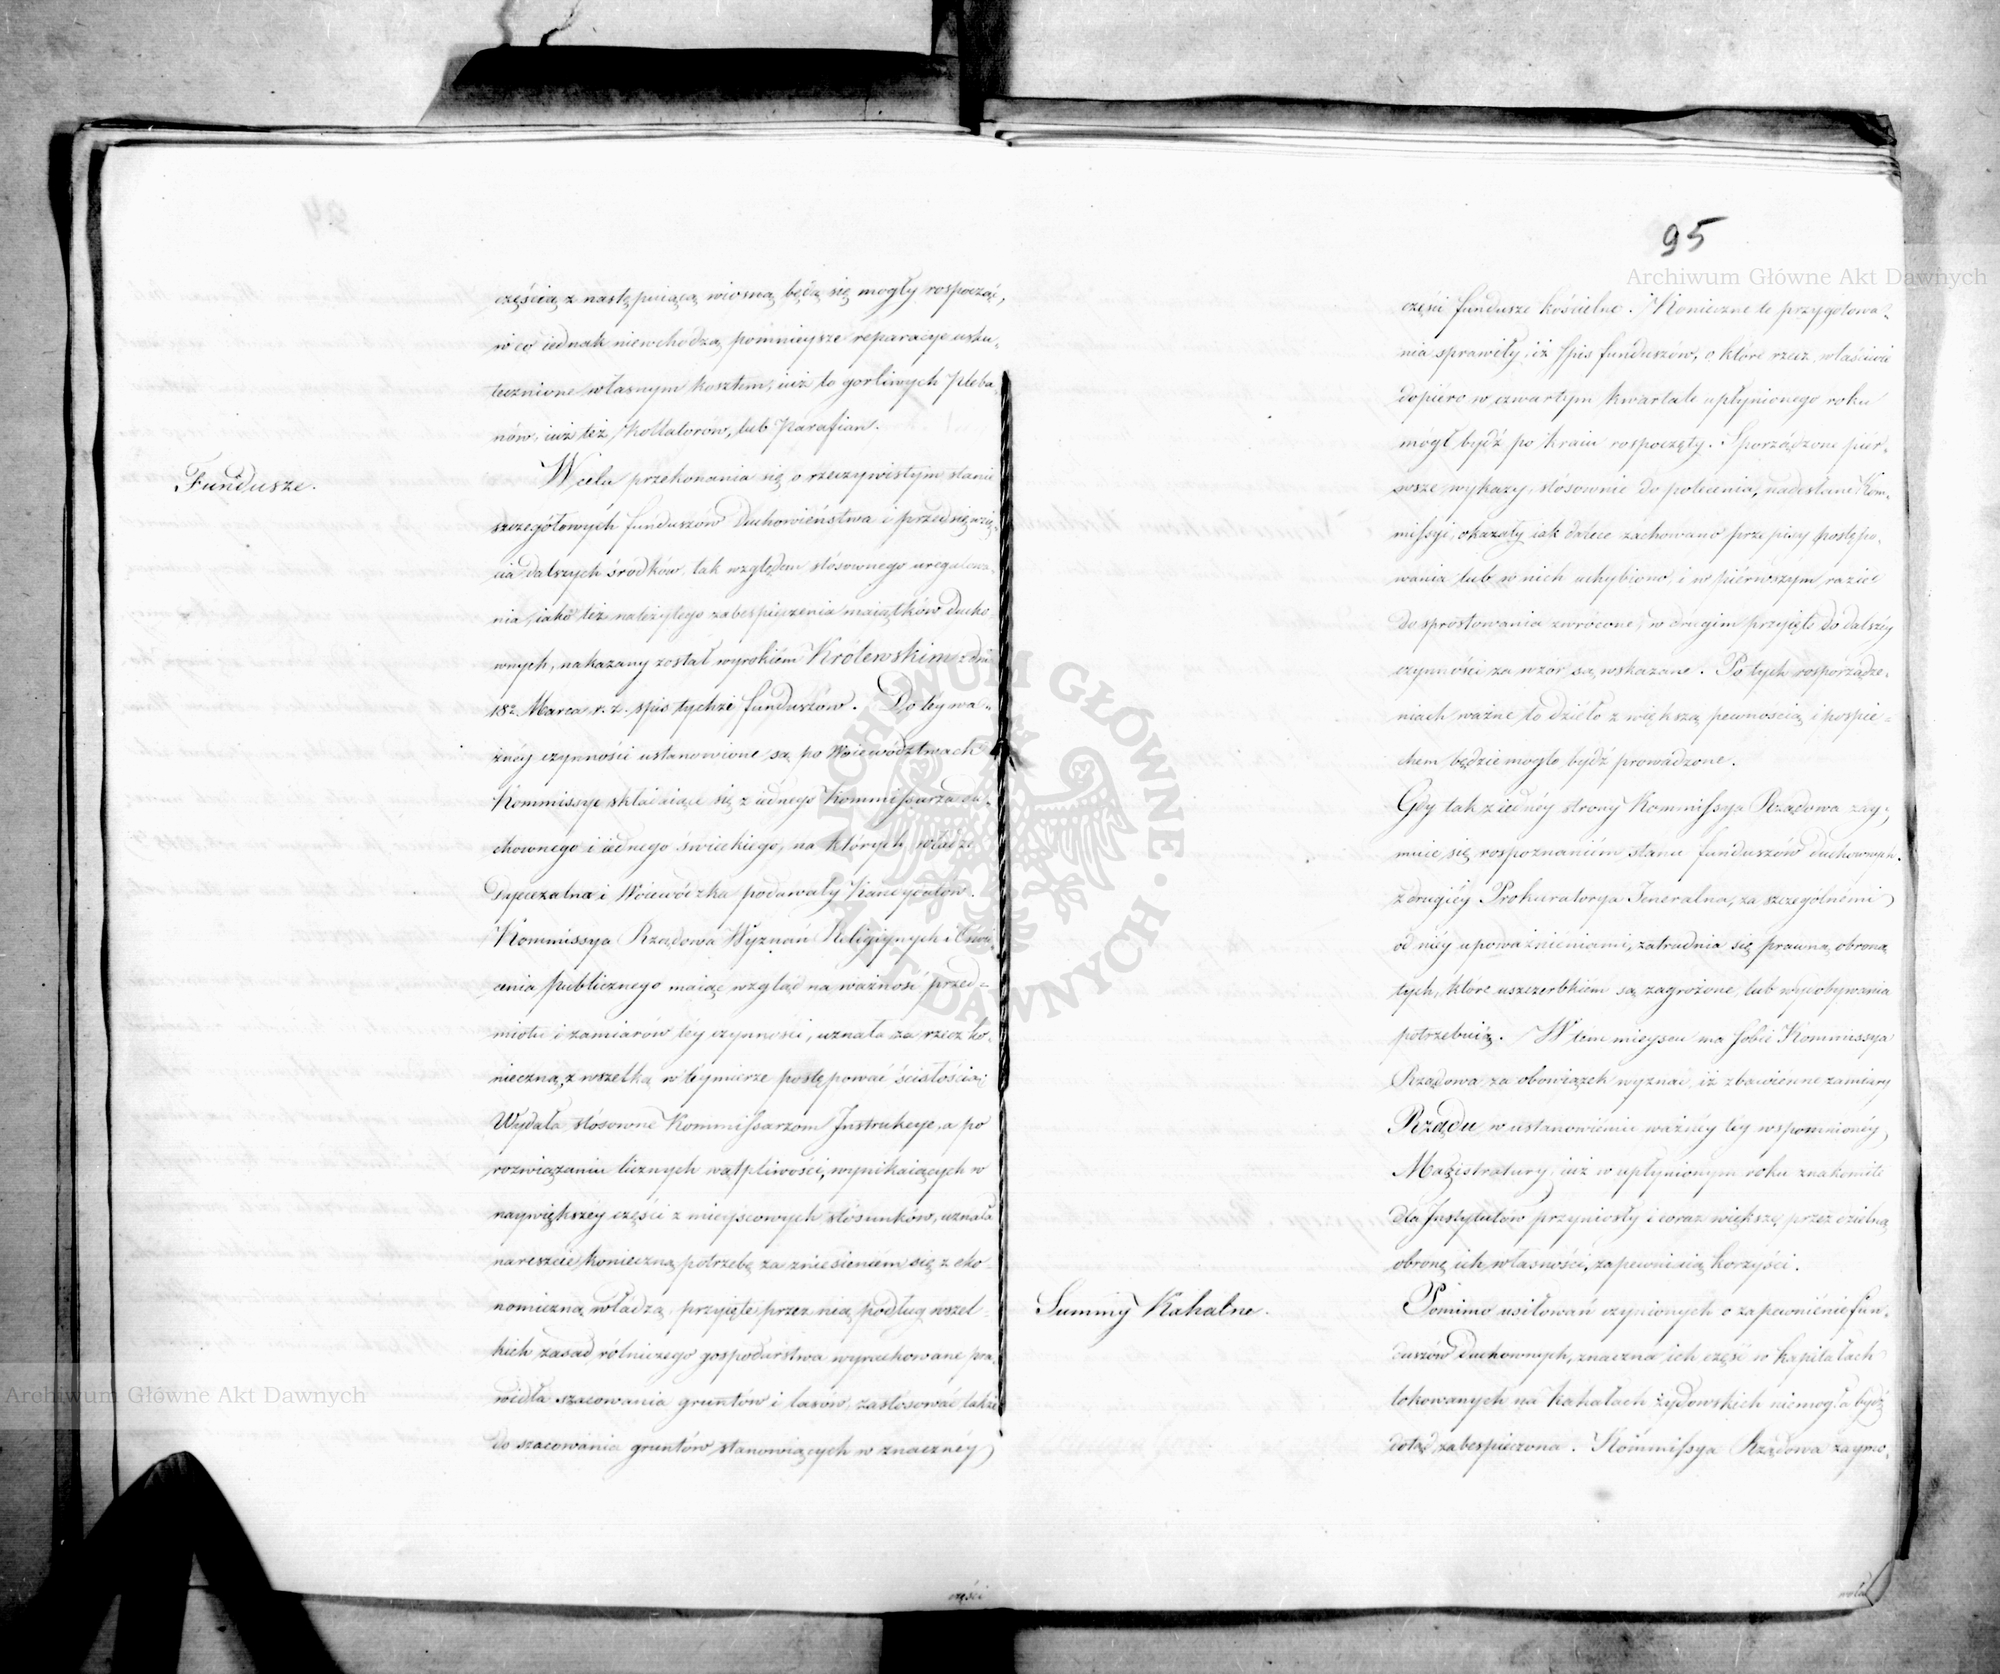 częścią z następuiącą wiosną będą się mogły rospocząć,
w co iednak niewchodzą pomnieysze reparacye usku-
tecznione własnym kosztem, iuż to gorliwych Pleba-
nów, iuż też Kollatorów, lub Parafian.
Fundusze.
W celu przekonania się o rzeczywistym stanie
szczegółowych funduszów Duchowieństwa i przedsięwzię-
cia dalszych śródków, tak względem stósownego uregulowa-
nia, iako też należytego zabespieczenia maiątków ducho-
wnych, nakazany został wyrokiem Królewskim z dnia
18º Marca r. z. spis tychże funduszów. Do tey wa-
żnéy czynności ustanowione są po Woiewództwach
Kommissye składaiące się z iednego Kommissarza du-
chownego i iednego świeckiego, na których władze
Dyecezalna i Woiewódzka podawały Kandydatów.
Kommissya Rządowa Wyznań Religiynych i Oświe-
cenia publicznego maiąc wzgląd na ważność przed-
miotu i zamiarów tey czynności, uznała za rzecz ko-
nieczną, z wszelką w téymierze postępować ścisłością;
Wydała stósowne Kommissarzom Instrukcye, a po
rozwiązaniu licznych wątpliwości, wynikaiących w
naywiększéy części z mieyscowych stósunków, uznała
nareszcie konieczną potrzebę za zniesieniem się z eko-
nomiczną władzą, przyięte przez nią podług wszel-
kich zasad rólniczego gospodarstwa wyrachowane pra-
widła szacowania gruntów i lasów, zastosować także
do szacowania gruntów stanowiących w znacznéy
części
95
części fundusze kościelne. Konieczne te przygotowa-
nia sprawiły, iż spis funduszów, o które rzecz, właściwie
dopiéro w czwartym kwartale upłynionego roku
mógł bydź po kraiu rospoczęty. Sporządzone piér-
wsze wykazy, stósownie do polecenia, nadesłane Kom-
missyi, okazały iak dalece zachowano przepisy postępo-
wania lub w nich uchybiono, i w piérwszym razie
do sprostowania zwrócone, w drugim przyięte do dalszéy
czynności za wzór są wskazane. Po tych rosporządze-
niach ważne to dzieło z większą pewnością i pospie-
chem będzie mogło bydź prowadzone.
Gdy tak z iednéy strony Kommissya Rządowa zay-
muie się rospoznaniem stanu funduszów duchownych,
z drugiéy Prokuratorya Jeneralna, za szczególnémi
od niéy upoważnieniami, zatrudnia się prawną obroną
tych, które uszczerbkiem są zagrożone, lub wydobywania
potrzebuią. W tem mieyscu ma sobie Kommissya
Rządowa za obowiązek wyznać, iż zbawienne zamiary
Rządu w ustanowieniu ważnéy téy wspomnionéy
Magistratury, iuż w upłynionym roku znakomite
dla Instytutów przyniosły i coraz większe przez dzielną
obronę ich własności, zapewniaią korzyści.
Summy Kahalne.
Pomimo usiłowań czynionych o zapewnienie fun-
duszów duchownych, znaczna ich część w kapitałach
lokowanych na kahałach żydowskich niemogła bydź
dotąd zabespieczona. Kommissya Rządowa zaymo-
wała
Archiwum Główne Akt Dawnych
Archiwum Główne Akt Dawnych
ARCHIWUM GŁÓWNE AKT DAWNYCH